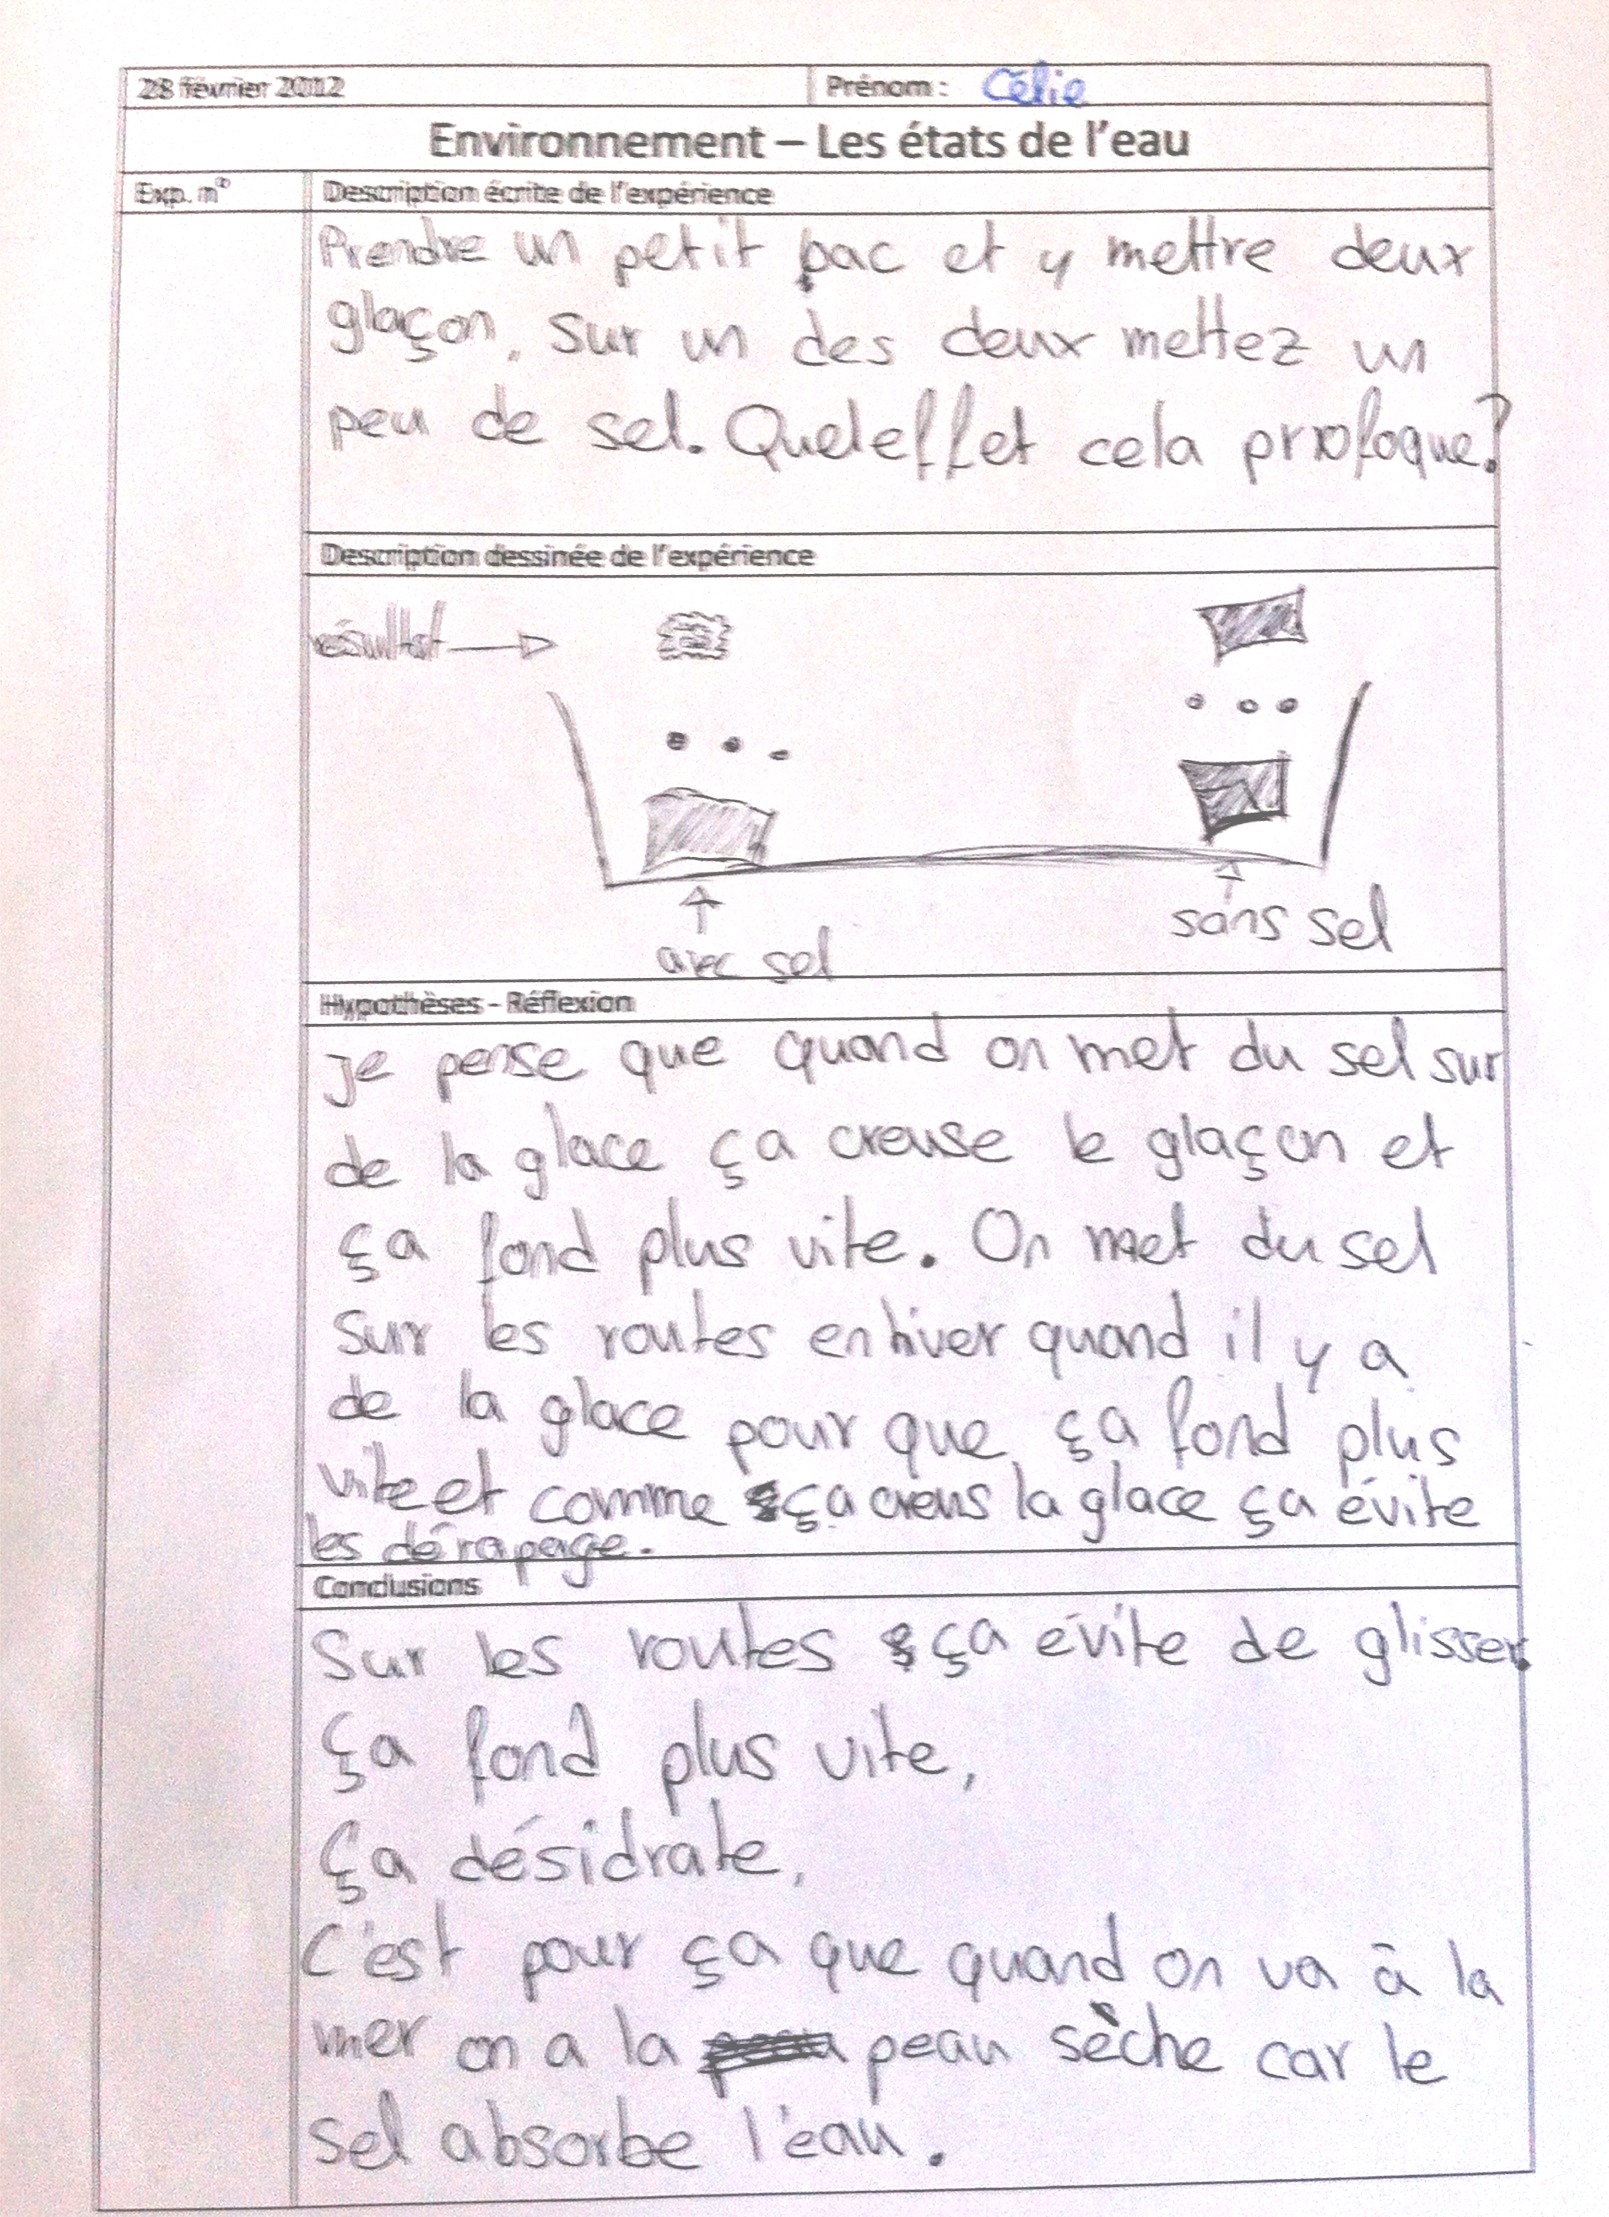 28 février 2012 Prénom : Célie
Environnement – Les états de l'eau
Exp. n° Description écrite de l'expérience
Prendre un petit bac et y mettre deux
glaçon, sur un des deux mettez un
peu de sel. Quel effet cela profoque?
Description dessinée de l'expérience
résultat
avec sel
sans sel
Hypothèses - Réflexion
je pense que quand on met du sel sur
de la glace ça creuse le glaçon et
ça fond plus vite. On met du sel
sur les routes en hiver quand il y a
de la glace pour que ça fond plus
vite et comme ça creus la glace ça évite
les dérapage.
Conclusions
Sur les routes ça évite de glisser.
Ça fond plus vite,
Ça désidrate,
C'est pour ça que quand on va à la
mer on a la peau sèche car le
sel absorbe l'eau.